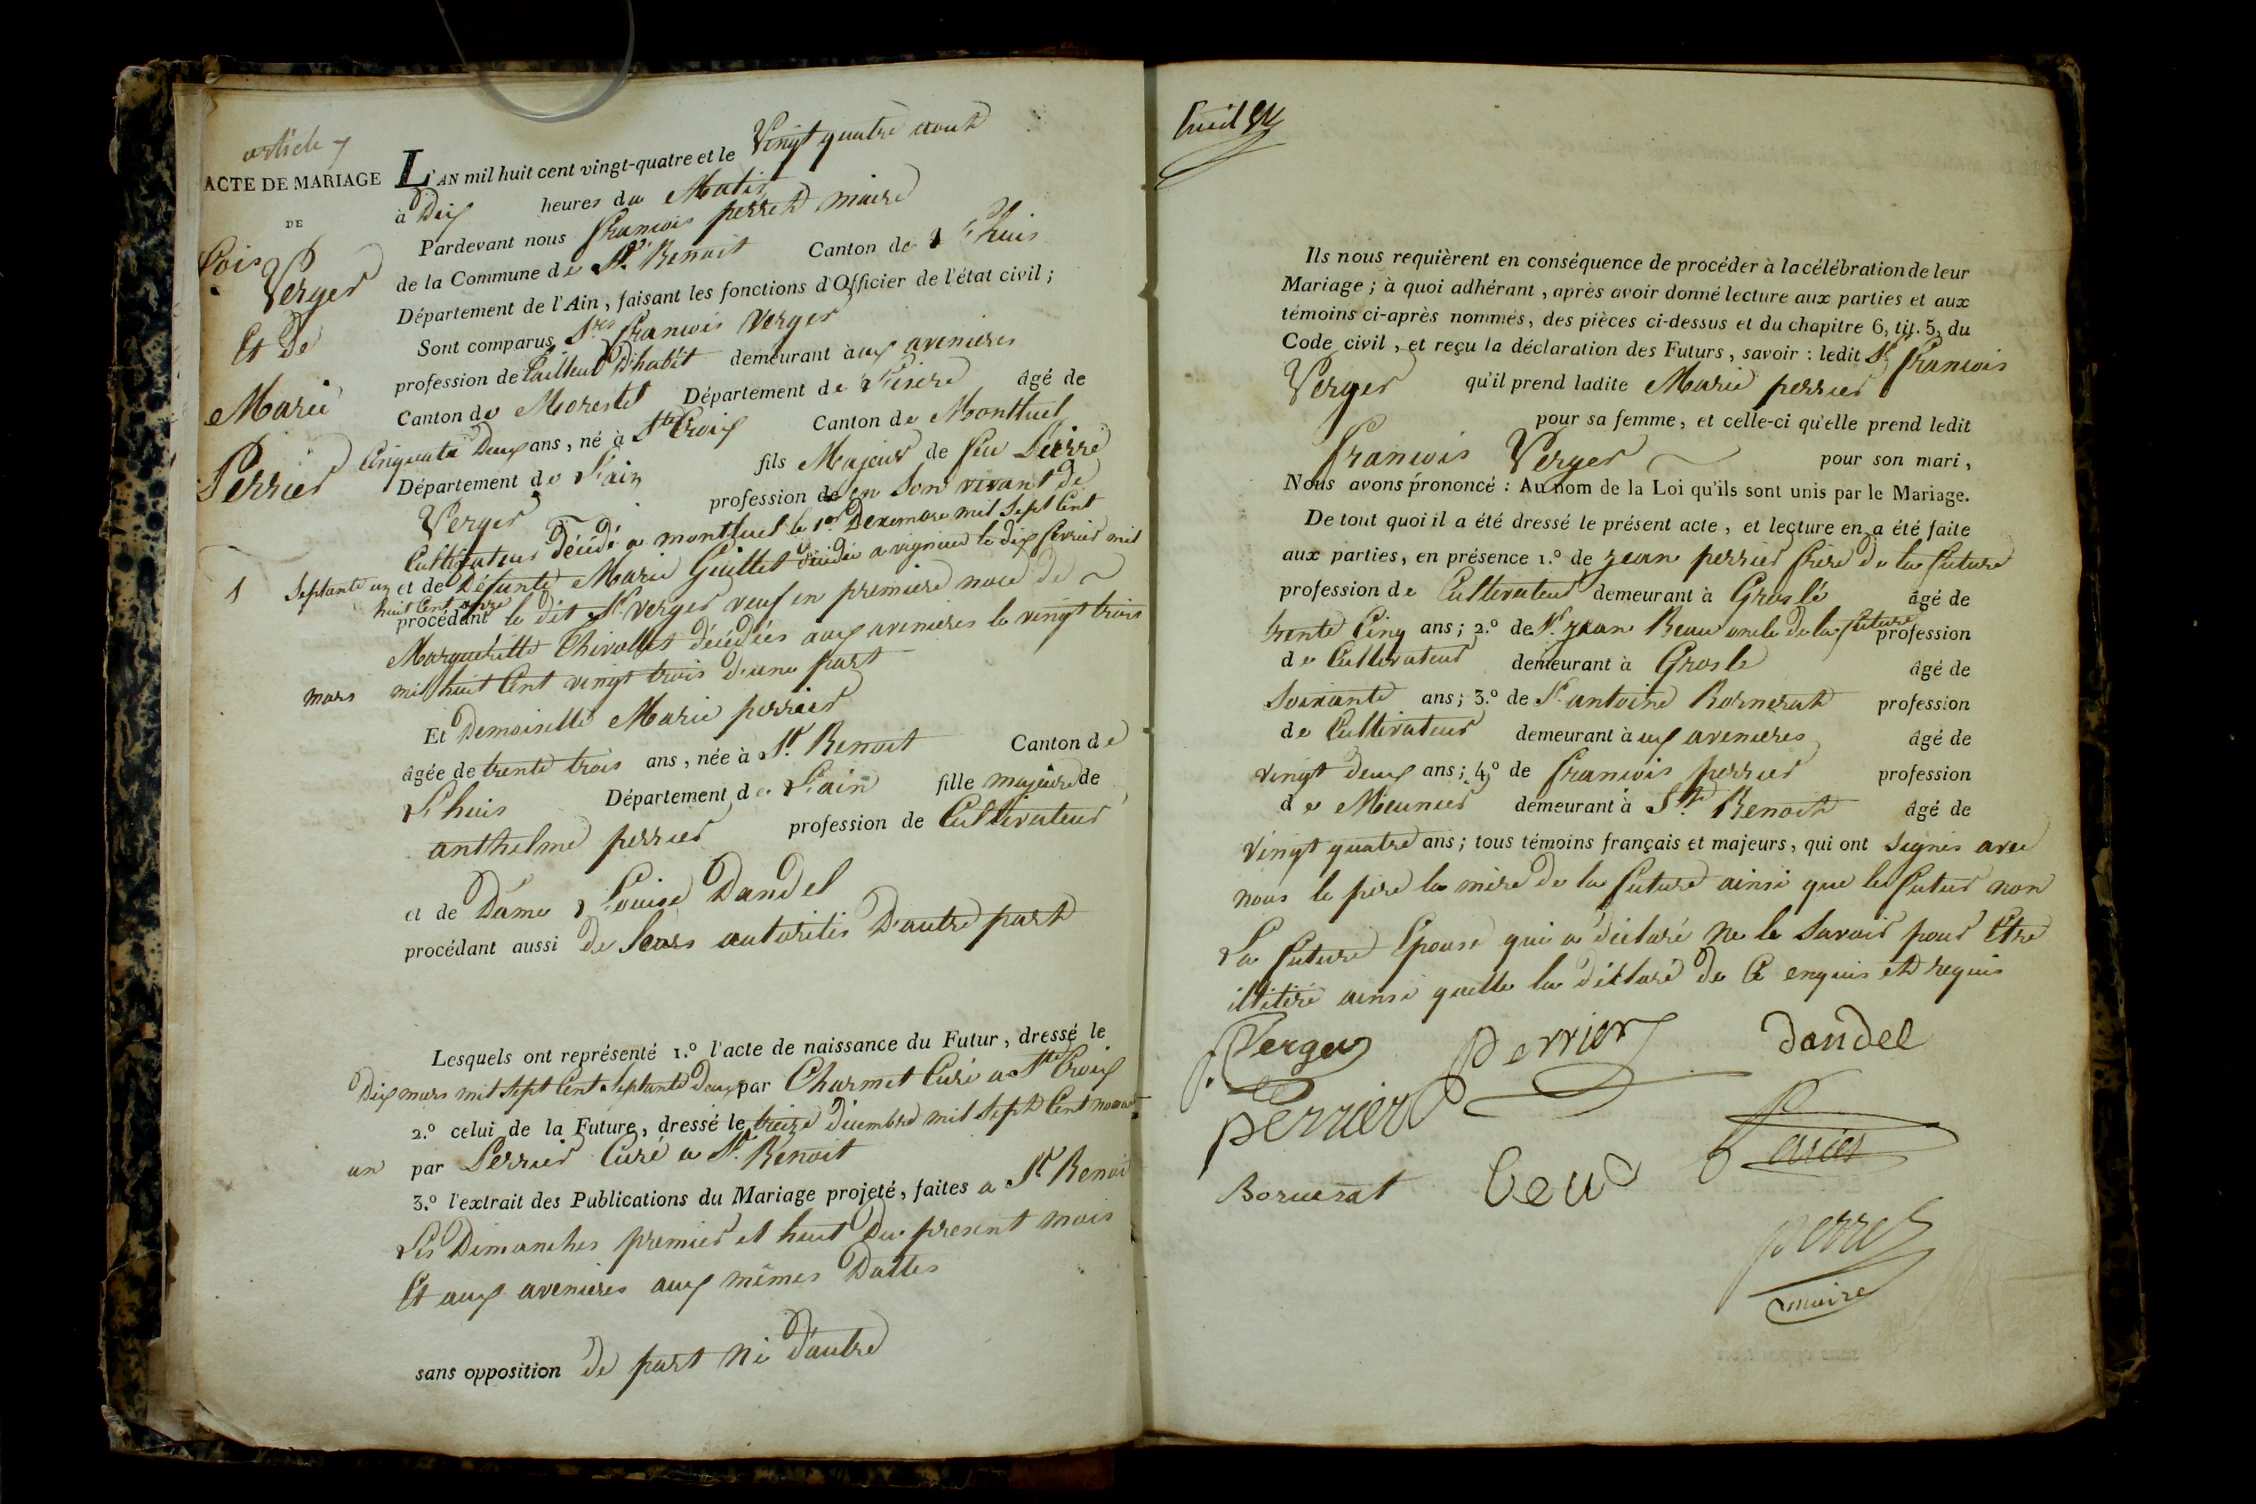 article 7
ACTE DE MARIAGE
DE
fois
Verger
Et De
Marie
Perrier
L'AN mil huit cent vingt-quatre et le Vingt quatre aout
à Dix heures du Matin
Pardevant nous francois perret maire
de la Commune de St. Benoit Canton de Lhuis
Département de l'Ain, faisant les fonctions d'Officier de l'état civil;
Sont comparus Srs francois Verger
profession de tailleur D'habit demeurant aux avenieres
Canton de Morestel Département de L'isère âgé de
Cinquante Deux ans, né à Ste Croix Canton de Montluel
Département de L'ain fils Majeur de feu Pierre
Verger profession de en Son vivant de
Cultivateur Décédé a montluel le 1er Decembre mil Sept Cent
1 Septante un et de Défunte Marie Guillet décédée a vignieu le dix fevrier mil
huit Cent onze
procédant le dit Sr. verger veuf en premiere noce de
Margueritte Thivollet décédées aux avenieres le vingt trois
mars mil huit Cent vingt trois d'une part
Et Demoiselle Marie perrier
âgée de trente trois ans, née à St. Benoit Canton de
Lhuis Département de L'ain fille majeure de
anthelme perrier profession de Cultivateur
et de Dame Louise Dandel
procédant aussi de Leurs autorités D'autre part
Lesquels ont représenté 1.º l'acte de naissance du Futur, dressé le
Dix mars mil Sept Cent Septante deux par Charmet Curé a Ste Croix
2.º celui de la Future, dressé le treize décembre mil Sept Cent nonante
un par Perrier Curé a St. Benoit
3.º l'extrait des Publications du Mariage projeté, faites a St Benoit
Les Dimanches premier et huit Du present mois
Et aux avenieres aux mêmes Dattes
sans opposition de part Ni d'autre
Ils nous requièrent en conséquence de procéder à la célébration de leur
Mariage; à quoi adhérant, après avoir donné lecture aux parties et aux
témoins ci-après nommés, des pièces ci-dessus et du chapitre 6, tit. 5, du
Code civil, et reçu la déclaration des Futurs, savoir: ledit Sr francois
Verger qu'il prend ladite Marie perrier
pour sa femme, et celle-ci qu'elle prend ledit
francois Verger pour son mari,
Nous avons prononcé: Au nom de la Loi qu'ils sont unis par le Mariage.
De tout quoi il a été dressé le présent acte, et lecture en a été faite
aux parties, en présence 1.º de jean perrier frere de la future
profession de Cultivateur demeurant à Groslé âgé de
trente Cinq ans; 2.º de Sr. jean Beau oncle de la future profession
de Cultivateur demeurant à Grosle âgé de
Soixante ans; 3.º de Sr antoine Bornerat profession
de Cultivateur demeurant à ux avenieres âgé de
vingt deux ans; 4.º de francois perrier profession
de Meunier demeurant à St. Benoit âgé de
vingt quatre ans; tous témoins français et majeurs, qui ont Signés avec
nous le pere la mère de la future ainsi que le futur non
La future Epouse qui a déclaré Ne le Savoir pour Etre
illitiré ainsi quelle la déclaré de Ce enquis et requis
f. Verger Perrier dandel
perrier
Bornerat beau
perret
maire